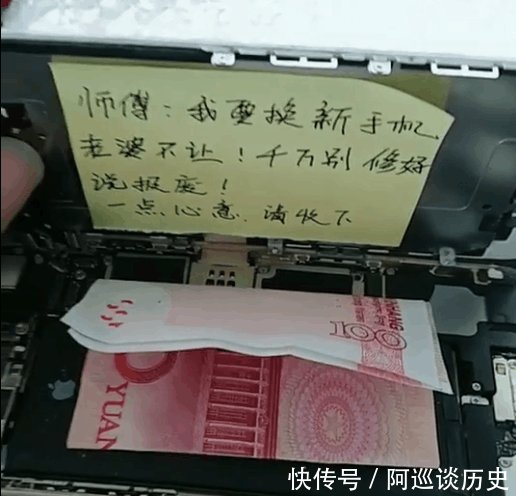 师傅：我要换新手机
老婆不让！千万别修好
说报废！
一点心意，请收下
100
YUAN
快传号 / 阿巡谈历史